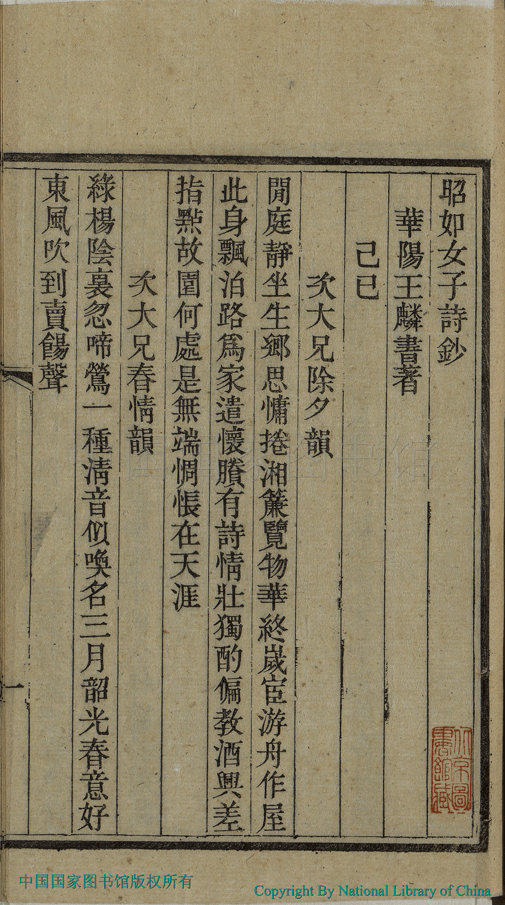 昭如女子詩鈔
華陽王麟書著
己巳
次大兄除夕韻
閒庭靜坐生鄉思慵捲湘簾覽物華終歲宦游舟作屋
此身飄泊路爲家遣懷賸有詩情壯獨酌偏教酒興差
指點故園何處是無端惆悵在天涯
次大兄春情韻
綠楊陰裏忽啼鶯一種淸音似喚名三月韶光春意好
東風吹到賣餳聲
一
北京圖書館藏
中国国家图书馆版权所有
Copyright By National Library of China